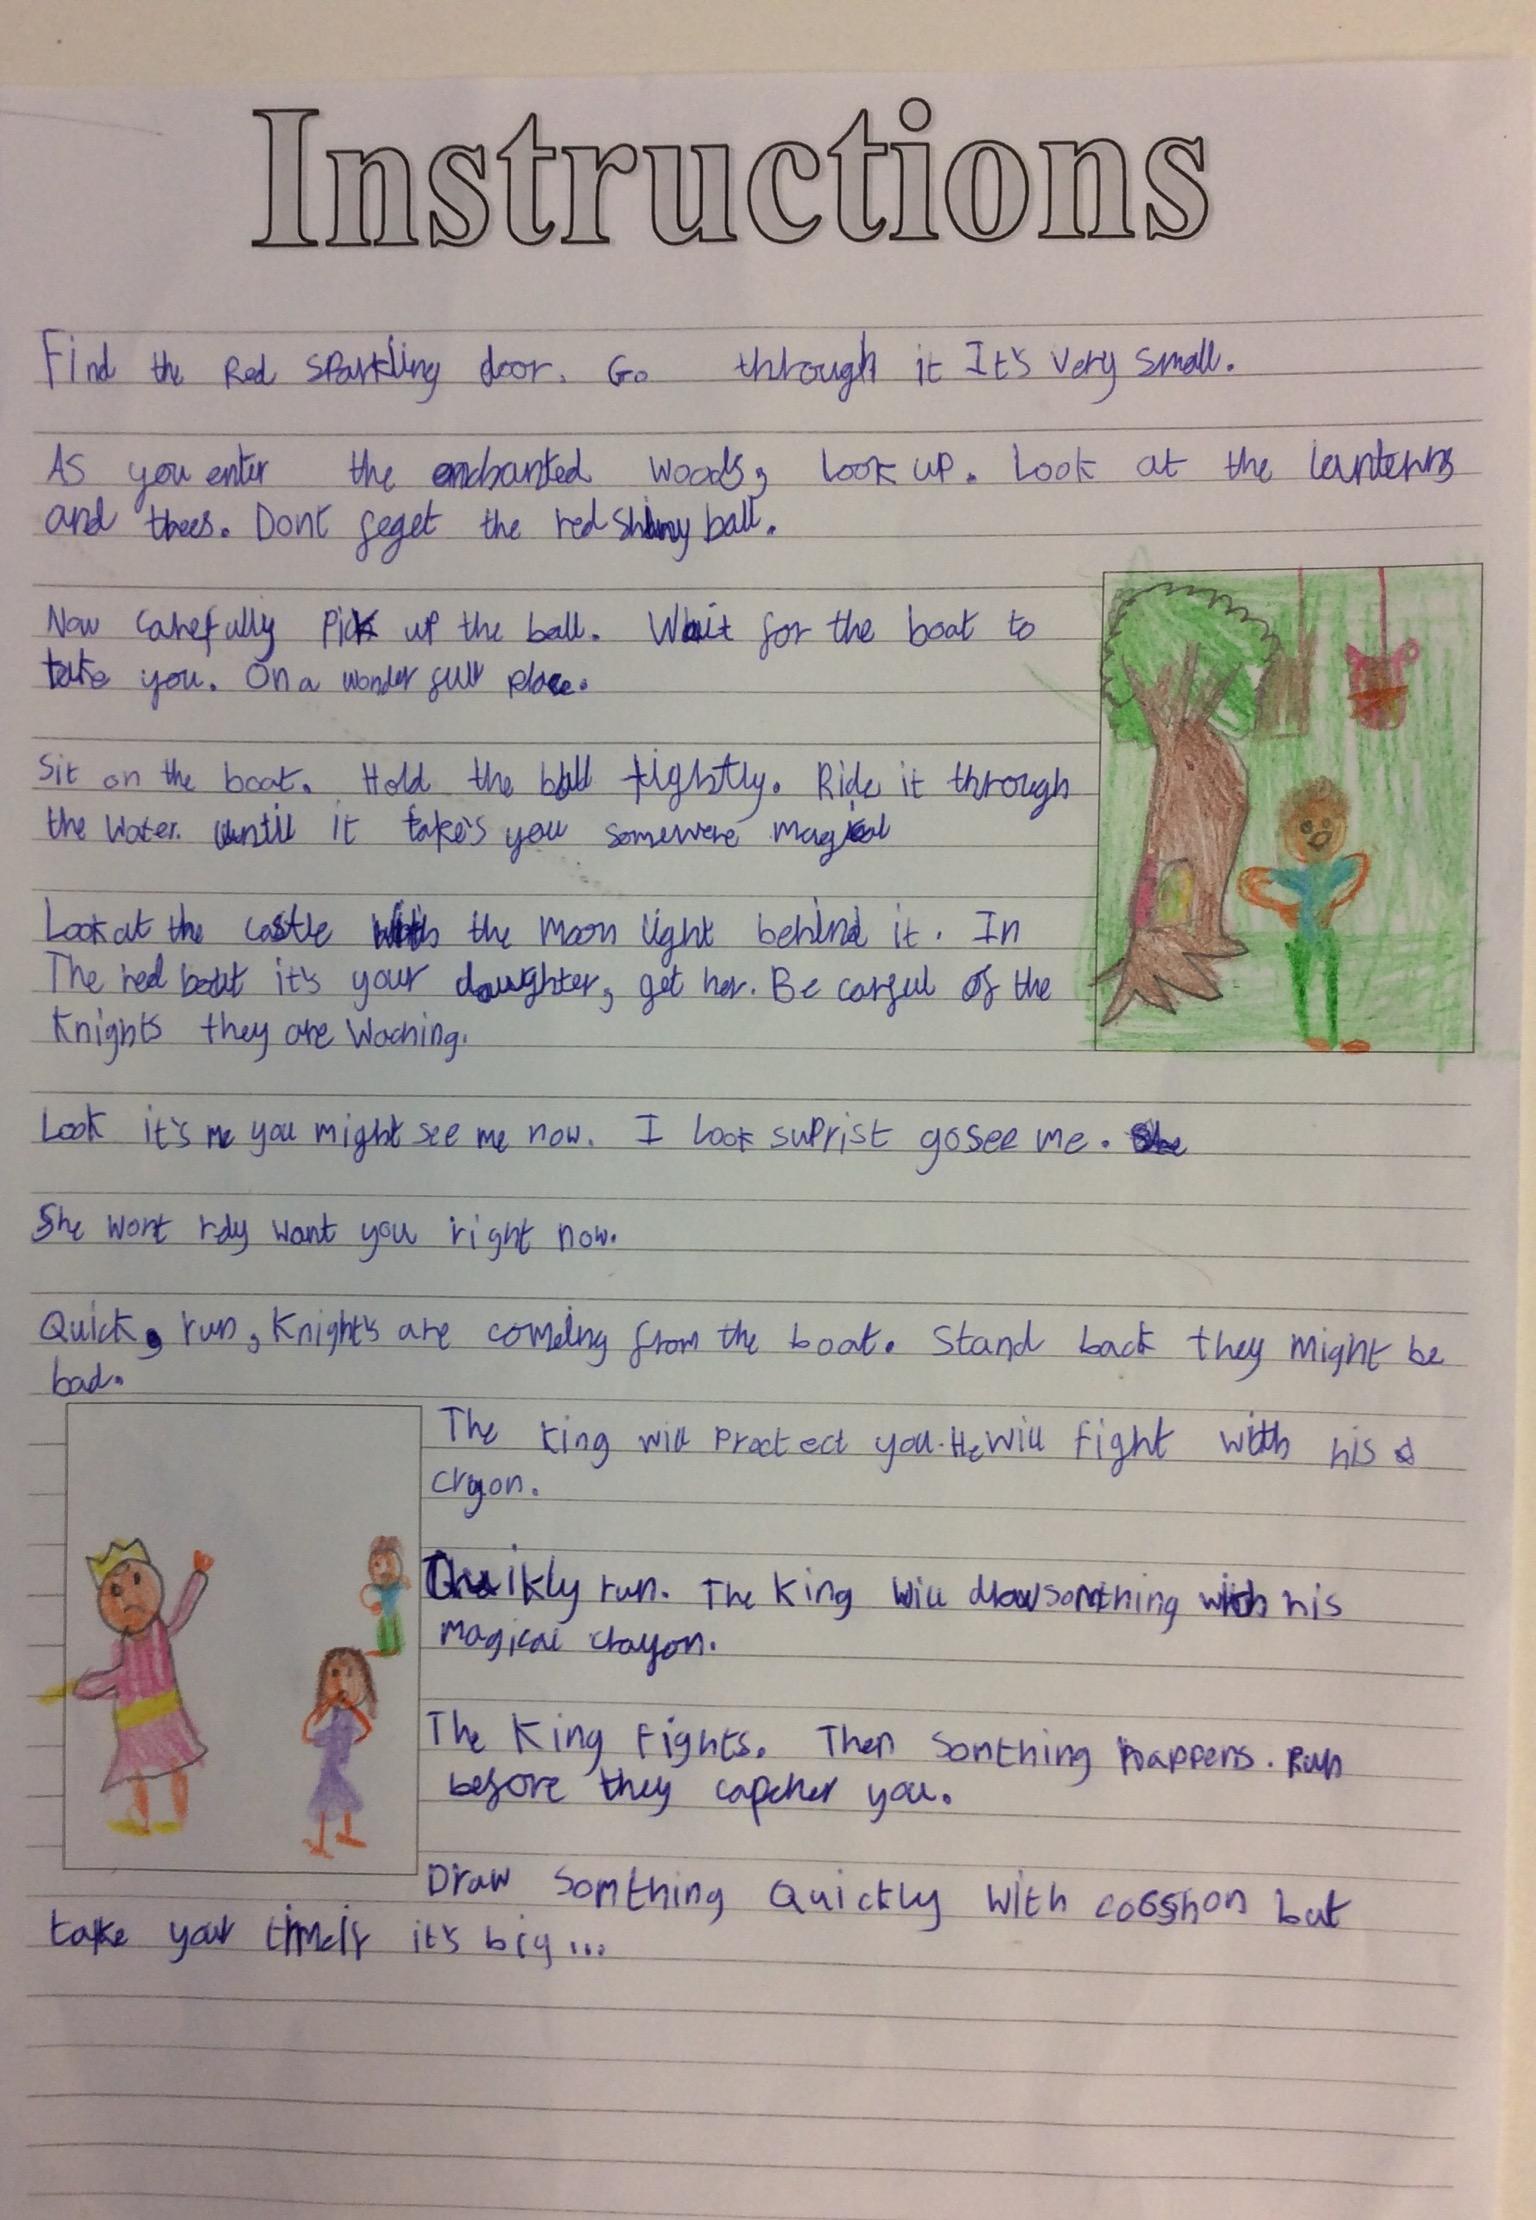 Instructions
Find the Red sparkling door. Go through it It's very small.
As you enter the enchanted woods, look up. Look at the lanterns
and trees. Dont feget the red shiny ball.
Now carefully pick up the ball. Wait for the boat to
take you. On a wonder full place.
Sit on the boat. Hold the ball tightly. Ride it through
the water. until it take's you somewere magical
Look at the castle with the moon light behind it. In
The red boat it's your daughter, get her. Be carful of the
Knights they are Waching.
Look it's me you might see me now. I look suprist go see me.
She wont rdy want you right now.
Quick, run, Knights are coming from the boat. Stand back they might be
bad.
The King will Protect you. He will fight with his
cryon.
Quikly run. The King will draw somthing with his
magical crayon.
The King Fights. Then somthing happens. Run
before they capcher you.
Draw somthing Quickly with but
take your time it's big...